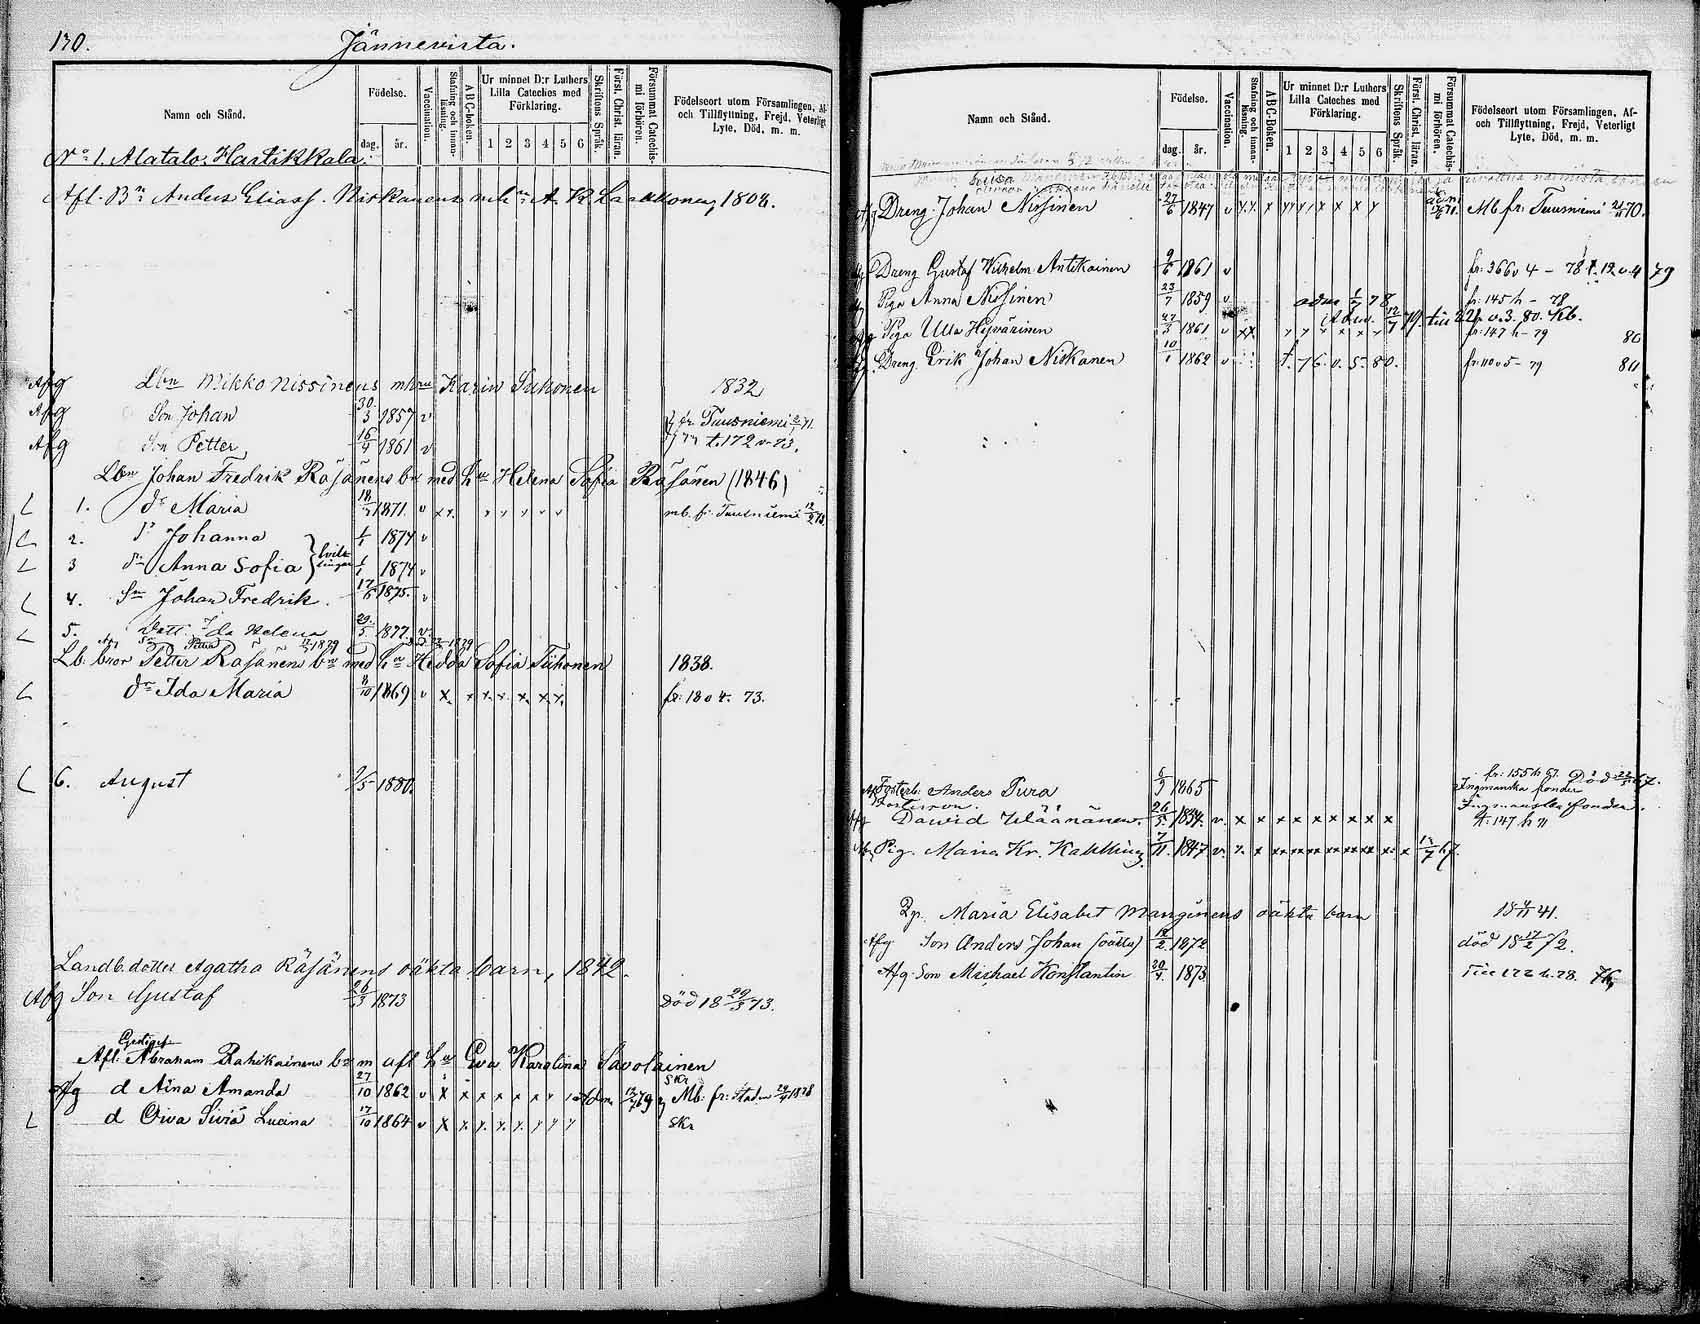 130.
Jännevirta.
Namn och Stånd.
Födelse.
dag.
år.
Vaccination.
Stafning och innan-läsning.
A B C-boken.
Ur minnet D:r Luthers Lilla Cateches med Förklaring.
1 2 3 4 5 6
Skriftens Språk.
Först. Christ. läran.
Försummat Catechis-mi förhören.
Födelseort utom Församlingen, Af- och Tillflyttning, Frejd, Veterligt Lyte, Död, m. m.
No 1. Alatalo: Hartikkala.
Afl. Bn Anders Eliass. Niskanens mhu A. K. Laakkonen, 1808.
Afg Lbn Mikko Nissinens mhru Karin Tukonen 1832
Afg Son Johan 30/3 1857 v fr Tuusniemi
Afg Son Petter 16/4 1861 v t. 172 v 73.
Lbn Johan Fredrik Räsänens bn med hu Helena Sofia Räsänen (1846)
1. dr Maria 18/3 1871. v mb. fr. Tuusniemi
2. dr Johanna 1/1 1874 v
3 dr Anna Sofia 1/1 1874 v
4. Sn Johan Fredrik. 17/6 1875. v
5. Dott. Ida Helena 29/5 1877. v
Lb. bror Petter Räsänens bn med hu Hedda Sofia Tiihonen 1838.
dr Ida Maria 8/10 1869 v x x x x x x x fr: 180 4. 73.
6. August 7/5 1880.
Landb. dotter Agatha Räsänens oäkta barn, 1842.
Afg Son Gustaf 26/3 1873 död 18 29/3 73.
Afl. Abraham Rahikainens bn m afl hu Eva Karolina Savolainen
Afg d Aina Amanda 27/10 1862 v x x x x x x x Adm Mb. fr: staden
d Oiva Siviä Lucina 17/10 1864 v x x x x x x x Skr
Namn och Stånd.
Födelse.
dag.
år.
Vaccination.
Stafning och innan-läsning.
A B C-Boken.
Ur minnet D:r Luthers Lilla Cateches med Förklaring.
1 2 3 4 5 6
Skriftens Språk.
Först. Christ. läran.
Försummat Catechis-mi förhören.
Födelseort utom Församlingen, Af- och Tillflyttning, Frejd, Veterligt Lyte, Död, m. m.
Afg Dreng Johan Nissinen 27/6 1847 v x x x x x x x x x Mb fr: Tuusniemi 70.
Dreng Gustaf Wilhelm Antikainen 9/6 1861 v fr: 366 v 4 – 78 t. 12 v 4 79
Piga Anna Nissinen 23/7 1859 v adm 78 fr: 145 h – 78
Piga Ulla Hyvärinen 27/3 1861 v x x x x x x x x fr: 147 h – 79 80
Dreng Erik Johan Niskanen 10/1 1862 v t. 76. v. 5. 80. fr: 110 v 5 – 79
Fosterb: Anders Tura 5/3 1865 fr: 155 h Död
Ingmanska fonder
Fosterson.
Ingmanska fonder.
Afg David Wäänänen. 26/5 1854. v. x x x x x x x x x t: 147 h
Afg Pig. Maria Kr. Kakkinen 7/11 1847 v.
Qp. Maria Elisabet Manginens oäkta barn 18 4/11 41.
Afg Son Anders Johan (oäkta) 12/2 1872 död 18 17/2 72.
Afg Son Michael Konstantin 20/4 1873 Till 172 h. 78.